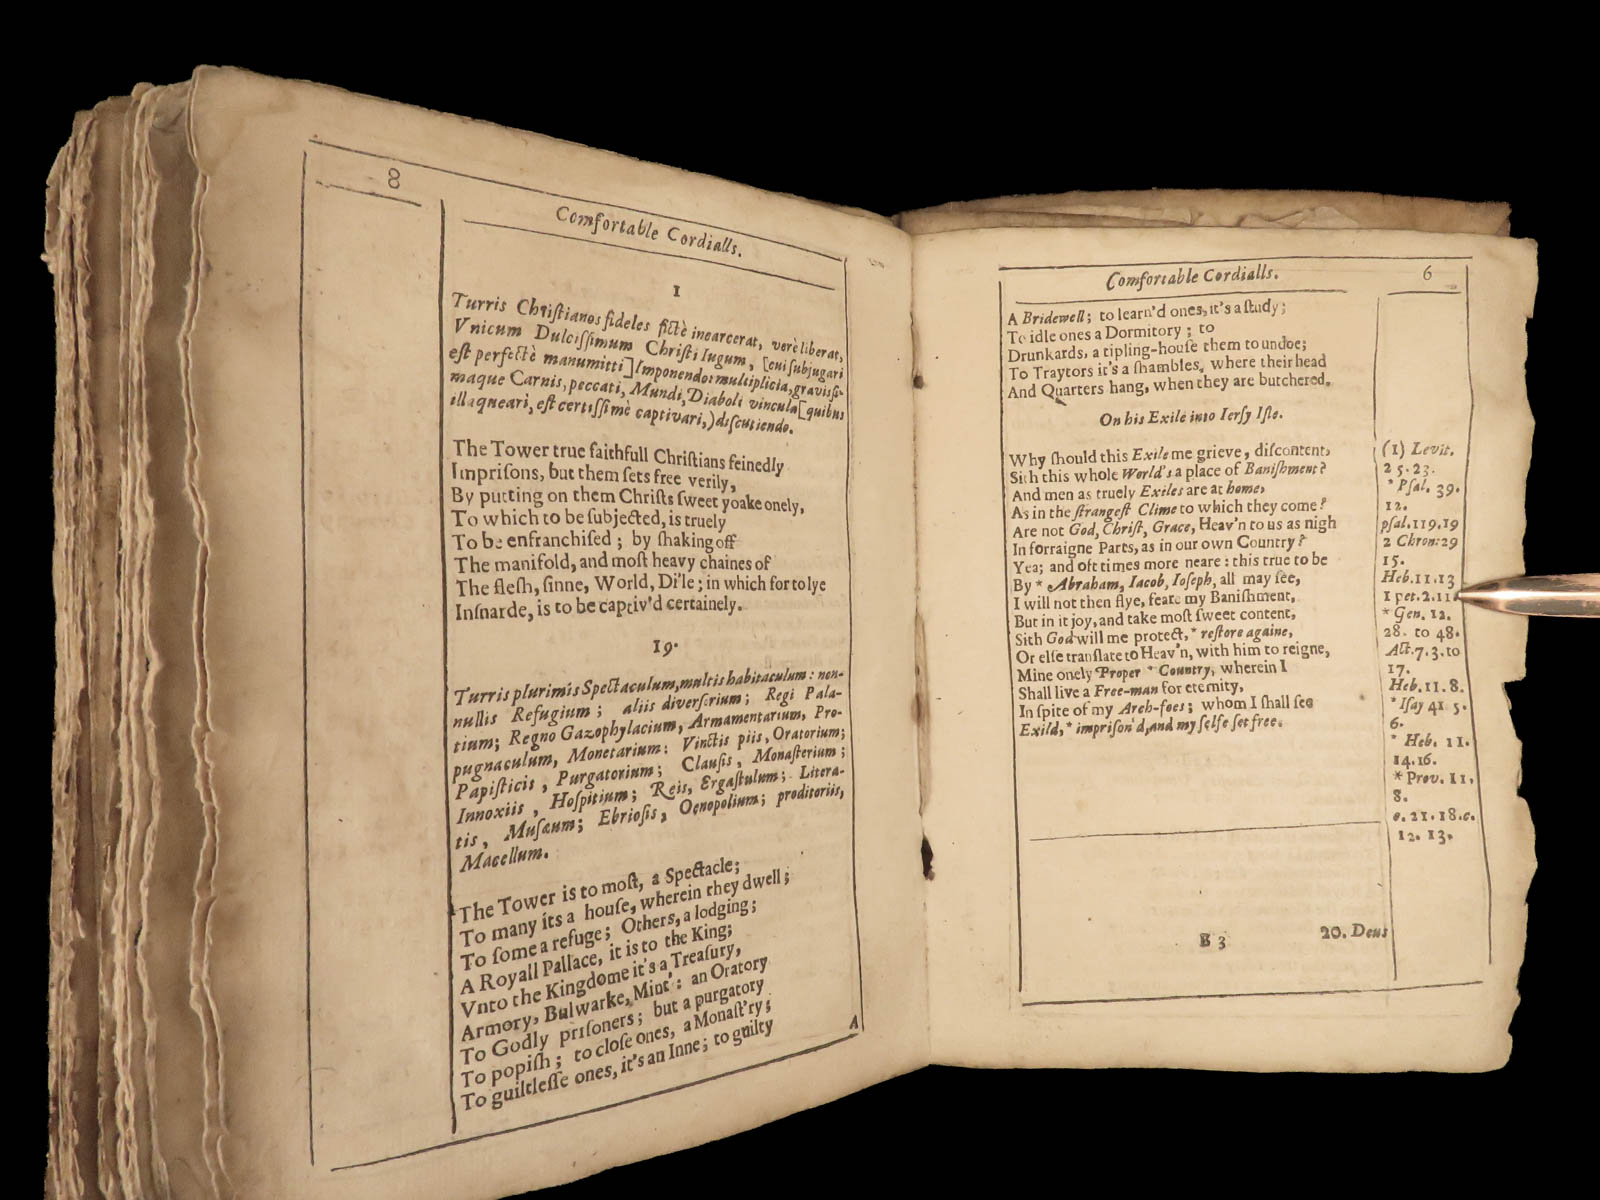 8
Comfortable Cordialls.
1
Turris Chriſtianos fideles fictè incarcerat, verè liberat,
Vnicum Dulciſſimum Chriſti Iugum, [cui ſubjugari
eſt perfectè manumitti] Imponendo: multiplicia, graviſſi-
maque Carnis, peccati, Mundi, Diaboli vincula [quibus
illaqueari, eſt certiſſimè captivari,) diſcutiendo.
The Tower true faithfull Chriſtians feinedly
Impriſons, but them ſets free verily,
By putting on them Chriſts ſweet yoake onely,
To which to be ſubjected, is truely
To be enfranchiſed ; by ſhaking off
The manifold, and moſt heavy chaines of
The fleſh, ſinne, World, Di'le ; in which for to lye
Inſnarde, is to be captiv'd certainely.
19.
Turris plurimis Spectaculum, multis habitaculum : non-
nullis Refugium ; aliis diverſorium ; Regi Pala-
tium; Regno Gazophylacium, Armamentarium, Pro-
pugnaculum, Monetarium: Vinctis piis, Oratorium;
Papiſticis, Purgatorium; Clauſis, Monaſterium ;
Innoxiis, Hoſpitium; Reis, Ergaſtulum; Litera-
tis, Muſæum; Ebrioſis, Oenopolium; proditoriis,
Macellum.
The Tower is to moſt, a Spectacle;
To many its a houſe, wherein they dwell ;
To ſome a refuge; Others, a lodging;
A Royall Pallace, it is to the King;
Vnto the Kingdome it's a Treaſury,
Armory, Bulwarke, Mint : an Oratory
To Godly priſoners; but a purgatory
To popiſh ; to cloſe ones, a Monaſt'ry;
To guiltleſſe ones, it's an Inne; to guilty
A
Comfortable Cordialls.
6
A Bridewell; to learn'd ones, it's a ſtudy;
To idle ones a Dormitory ; to
Drunkards, a tipling-houſe them to undoe;
To Traytors it's a ſhambles, where their head
And Quarters hang, when they are butchered.
On his Exile into Ierſy Iſle.
Why ſhould this Exile me grieve, diſcontent,
Sith this whole World's a place of Baniſhment?
And men as truely Exiles are at home,
As in the ſtrangeſt Clime to which they come?
Are not God, Chriſt, Grace, Heav'n to us as nigh
In forraigne Parts, as in our own Country?
Yea; and oft times more neare : this true to be
By * Abraham, Iacob, Ioſeph, all may ſee,
I will not then flye, feare my Baniſhment,
But in it joy, and take moſt ſweet content,
Sith God will me protect, * reſtore againe,
Or elſe tranſlate to Heav'n, with him to reigne,
Mine onely Proper * Country, wherein I
Shall live a Free-man for eternity,
In ſpite of my Arch-foes; whom I ſhall ſee
Exild, * impriſon'd, and my ſelfe ſet free.
(1) Levit.
25.23.
* Pſal. 39.
12.
pſal.119.19
2 Chron:29
15.
Heb.11.13
1 pet.2.11.
* Gen. 12.
28. to 48.
Act.7.3.to
17.
Heb.11.8.
* Iſay 41. 5.
6.
* Heb. 11.
14.16.
* Prov. 11,
8.
c.21.18.c.
12. 13.
B 3
20. Deus